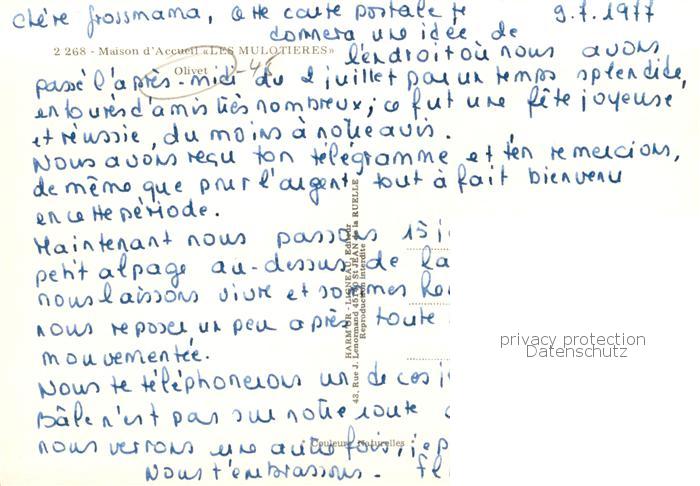 Chère Grossmama, cette carte postale te 9.7.1977
donnera une idée de
2 268 - Maison d'Accueil «LES MULOTIERES» l'endroit où nous avons
Olivet
passé l'après-midi du 2 juillet par un temps splendide,
entourés d'amis très nombreux; ce fut une fête joyeuse
et réussie, du moins à notre avis.
Nous avons reçu ton télégramme et t'en remercions,
de même que pour l'argent tout à fait bienvenu
en cette période.
Maintenant nous passons 15 j
petit alpage au-dessus de la
nous laissons vivre et sommes
nous reposer un peu après toute
mouvementée.
Nous te téléphonerons un de ces j
Bâle n'est pas sur notre route
nous verrons une autre fois, j'esp
Nous t'embrassons.
HARMOR - LIGNEAU, Editeur
43, Rue J. Lenormand 45140 St JEAN de la RUELLE
Reproduction interdite
Couleurs Naturelles
privacy protection
Datenschutz